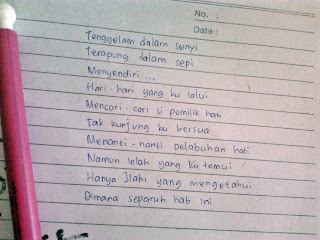 No. :
Date :
Tenggelam dalam sunyi
Terapung dalam sepi
Menyendiri ...
Hari-hari yang ku lalui
Mencari-cari si pemilik hati
Tak kunjung ku bersua
Menanti-nanti pelabuhan hati
Namun lelah yang ku temui
Hanya Ilahi yang mengetahui
Dimana separuh hati ini